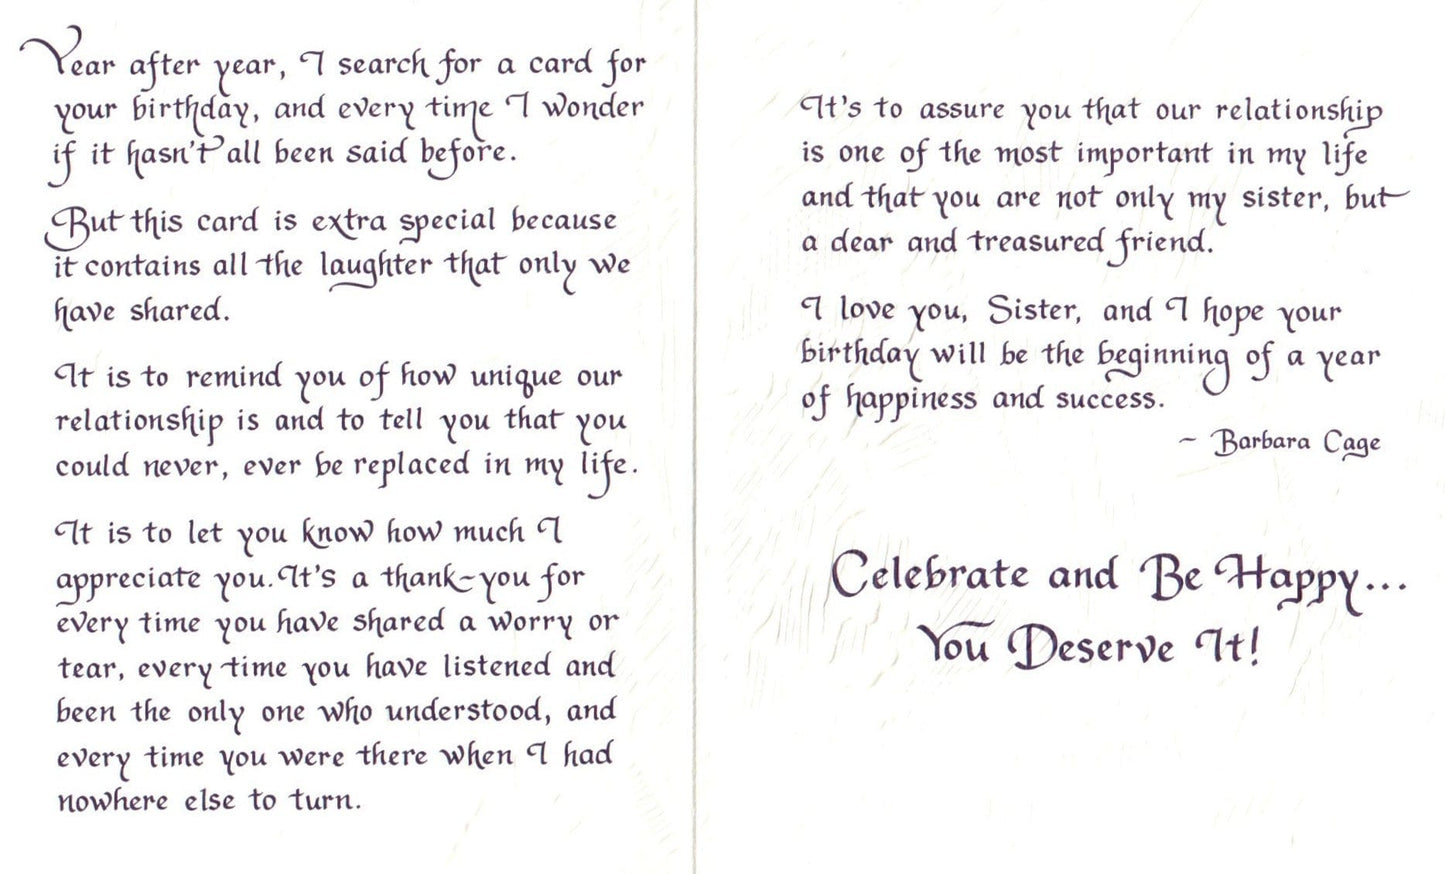 Year after year, I search for a card for
your birthday, and every time I wonder
if it hasn't all been said before.
But this card is extra special because
it contains all the laughter that only we
have shared.
It is to remind you of how unique our
relationship is and to tell you that you
could never, ever be replaced in my life.
It is to let you know how much I
appreciate you. It's a thank-you for
every time you have shared a worry or
tear, every time you have listened and
been the only one who understood, and
every time you were there when I had
nowhere else to turn.
It's to assure you that our relationship
is one of the most important in my life
and that you are not only my sister, but
a dear and treasured friend.
I love you, Sister, and I hope your
birthday will be the beginning of a year
of happiness and success.
~ Barbara Cage
Celebrate and Be Happy...
You Deserve It!